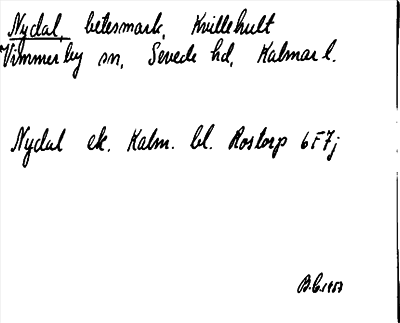 Nydal, betesmark, Kvillehult
Vimmerby sn, Sevede hd, Kalmar l.
Nydal ek. Kalm. bl. Rostorp 6F7j
B.G. 1957